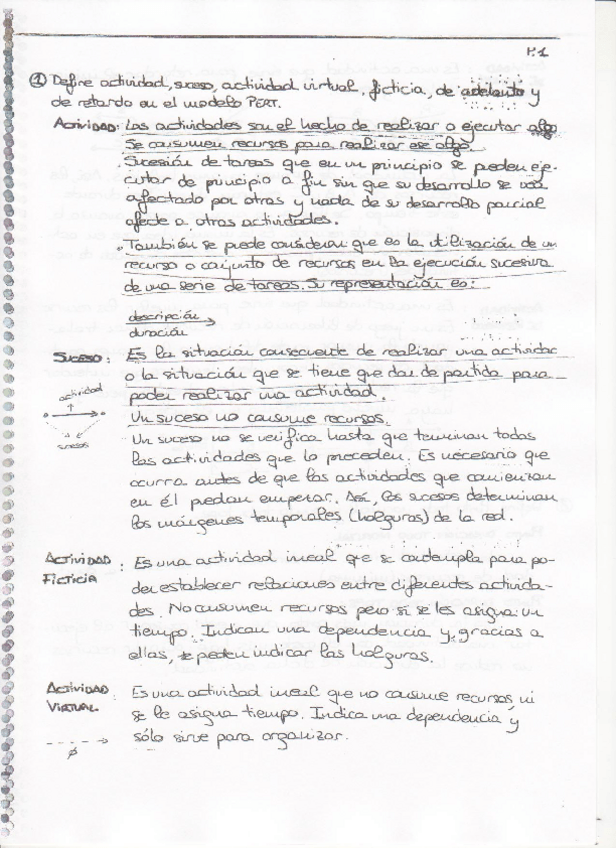 P.1
① Define actividad, suceso, actividad virtual, ficticia, de adelanto y
de retardo en el modelo PERT.
ACTIVIDAD: Las actividades son el hecho de realizar o ejecutar algo.
Se consumen recursos para realizar ese algo.
Sucesión de tareas que en un principio se pueden eje-
cutar de principio a fin sin que su desarrollo se vea
afectado por otras y nada de su desarrollo parcial
afecte a otras actividades.
También se puede considerar que es la utilización de un
recurso o conjunto de recursos en la ejecución sucesiva
de una serie de tareas. Su representación es:
descripción
duración
SUCESO: Es la situación consecuente de realizar una actividad
o la situación que se tiene que dar de partida para
poder realizar una actividad.
actividad
Un suceso no consume recursos.
sucesos
Un suceso no se verifica hasta que terminan todas
las actividades que lo preceden. Es necesario que
ocurra antes de que las actividades que comienzan
en él puedan empezar. Así, los sucesos determinan
los márgenes temporales (holguras) de la red.
ACTIVIDAD FICTICIA: Es una actividad irreal que se contempla para po-
der establecer relaciones entre diferentes activida-
des. No consumen recursos pero sí se les asigna un
tiempo. Indican una dependencia y, gracias a
ellas, se pueden indicar las holguras.
ACTIVIDAD VIRTUAL: Es una actividad irreal que no consume recursos ni
se le asigna tiempo. Indica una dependencia y
sólo sirve para organizar.
ø